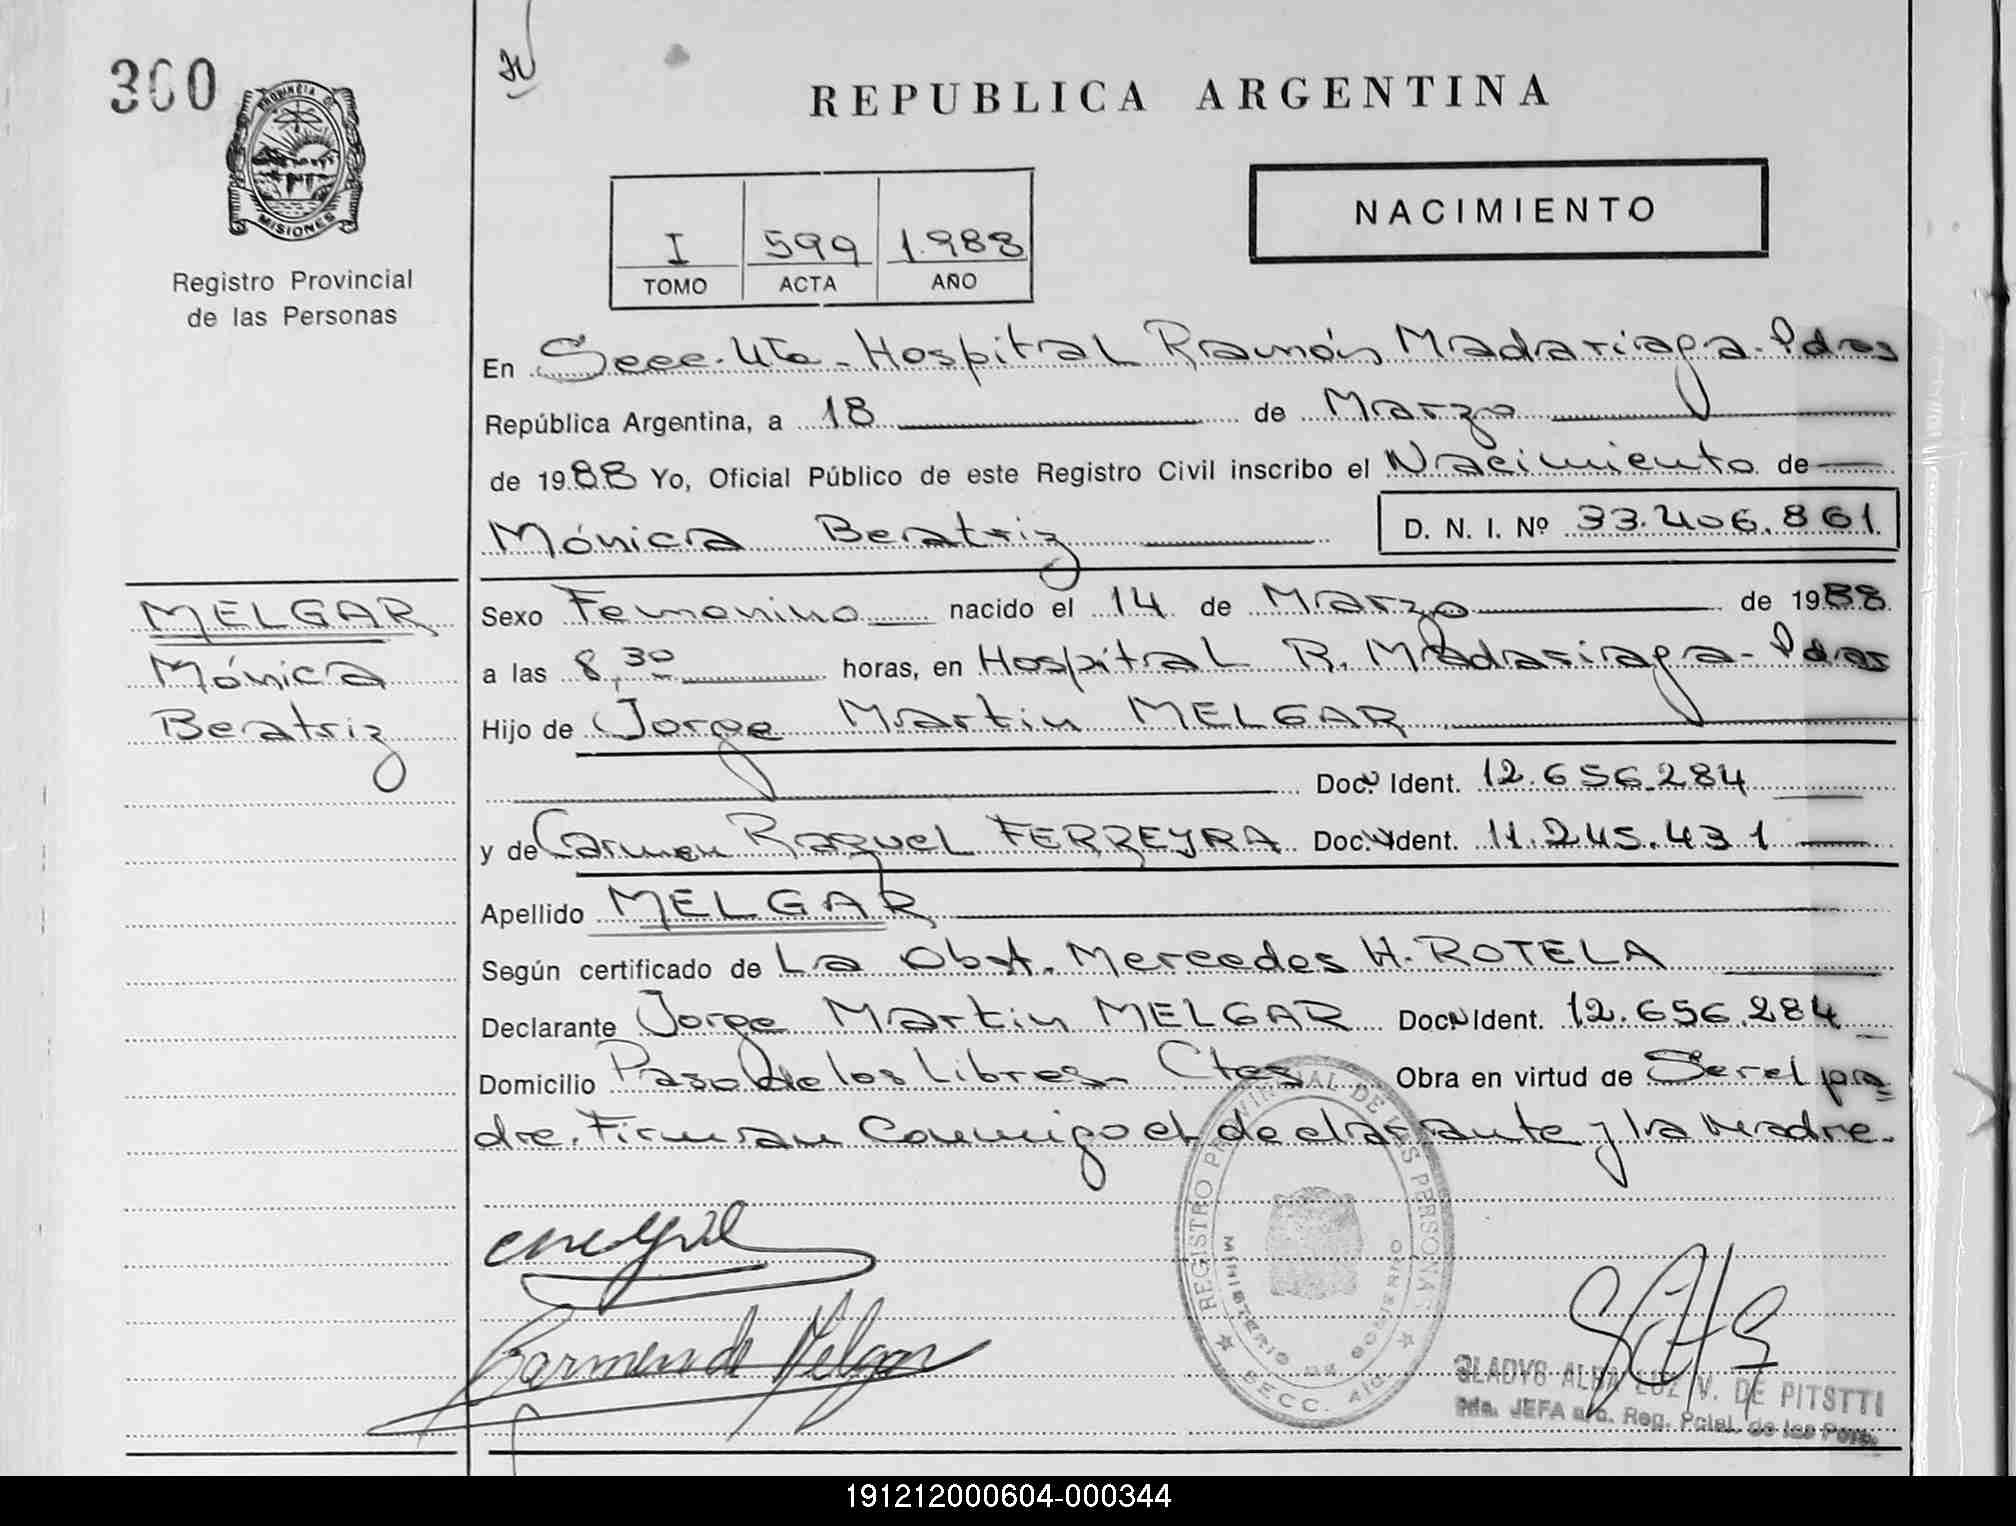 300
PROVINCIA DE
MISIONES
Registro Provincial
de las Personas
REPUBLICA ARGENTINA
I 599 1.988
TOMO ACTA AÑO
NACIMIENTO
En Secc. 4ta - Hospital Ramón Madariaga - Pdas
República Argentina, a 18 de Marzo
de 1988 Yo, Oficial Público de este Registro Civil inscribo el Nacimiento de
Mónica Beatriz D. N. I. Nº 33.406.861
MELGAR
Mónica
Beatriz
Sexo Femenino nacido el 14 de Marzo de 1988
a las 8,30 horas, en Hospital R. Madariaga - Pdas
Hijo de Jorge Martin MELGAR
Doc. Ident. 12.656.284
y de Carmen Raquel FERREYRA Doc. Ident. 11.245.431
Apellido MELGAR
Según certificado de La Obst. Mercedes H. ROTELA
Declarante Jorge Martin MELGAR Doc. Ident. 12.656.284
Domicilio Paso de los Libres - Ctes Obra en virtud de Ser el pa=
dre. Firman Conmigo el declarante y la Madre.
REGISTRO PROVINCIAL DE LAS PERSONAS
MINISTERIO DE GOBIERNO
SECC. 4ta
Carmen de Melgar
GLADYS ALBA LUZ V. DE PITSTTI
JEFA a/c. Reg. Pcial. de las Pers.
191212000604-000344